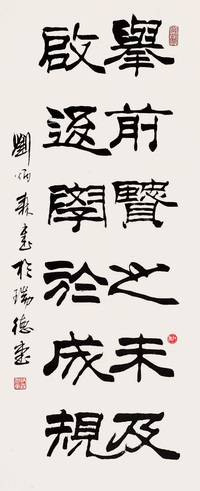 舉前賢之未及
啟後學於成規
劉炳森書於瑞德